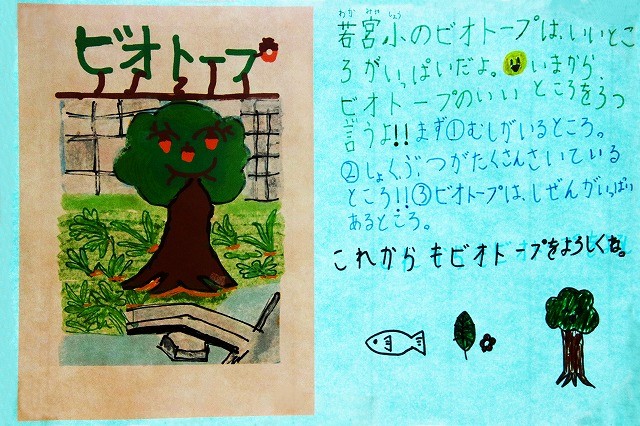 ビオトープ
わか みや しょう
若宮小のビオトープは、いいとこ
ろがいっぱいだよ。いまから、
ビオトープのいいところを3つ
言うよ!!まず①むしがいるところ。
②しょくぶつがたくさんさいている
ところ!!③ビオトープは、しぜんがいっぱい
あるところ。
これからもビオトープをよろしくな。